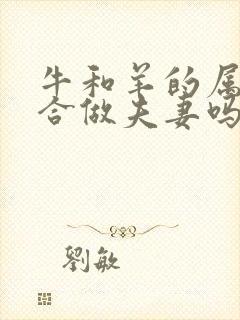 牛和羊的属
合做夫妻吗
劉敏